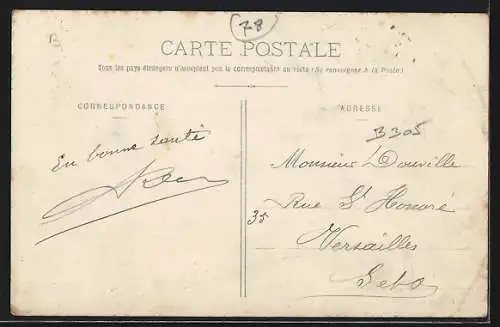 B
78
CARTE POSTALE
Tous les pays étrangers n'acceptent pas la correspondance au recto (Se renseigner à la Poste)
CORRESPONDANCE
ADRESSE
3305
En bonne santé
Monsieur Douville
Rue St Honoré
35
Versailles